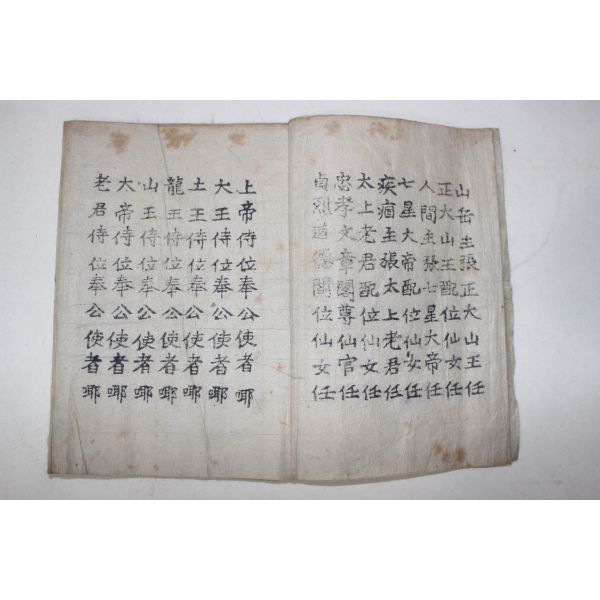 山岳主張正大山王任
正大山王配位仙女任
人間主張七星大帝任
七星大帝配位仙女任
疾痼主張太上老君任
太上老君配位仙女任
忠孝文章閣尊仙官任
貞烈道德閣位仙女任
上帝侍位奉公使者哪
大王侍位奉公使者哪
土王侍位奉公使者哪
龍王侍位奉公使者哪
山王侍位奉公使者哪
大帝侍位奉公使者哪
老君侍位奉公使者哪